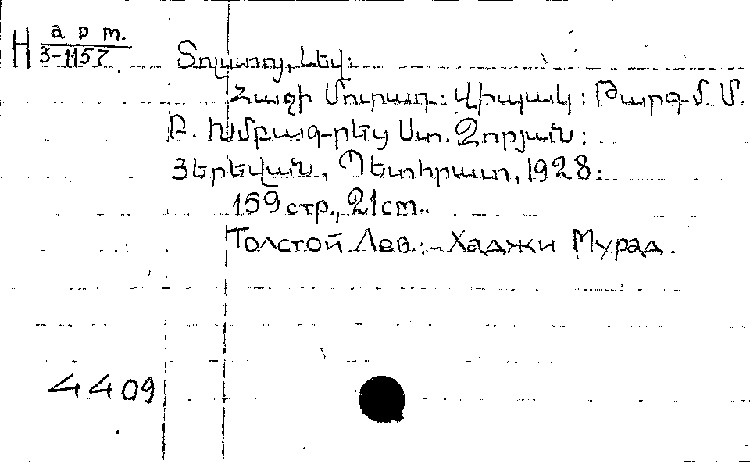 H а р т.
3-1157
Տոլստոյ, Լեվ:
Հաջի Մուրադ: Վիպակ: Թարգմ. Մ.
Բ. Խմբագրեց Ստ. Զորյան:
Յերեվան, Պետհրատ, 1928:
159 стр., 21 cm.
Толстой Лев. - Хаджи Мурад.
4409